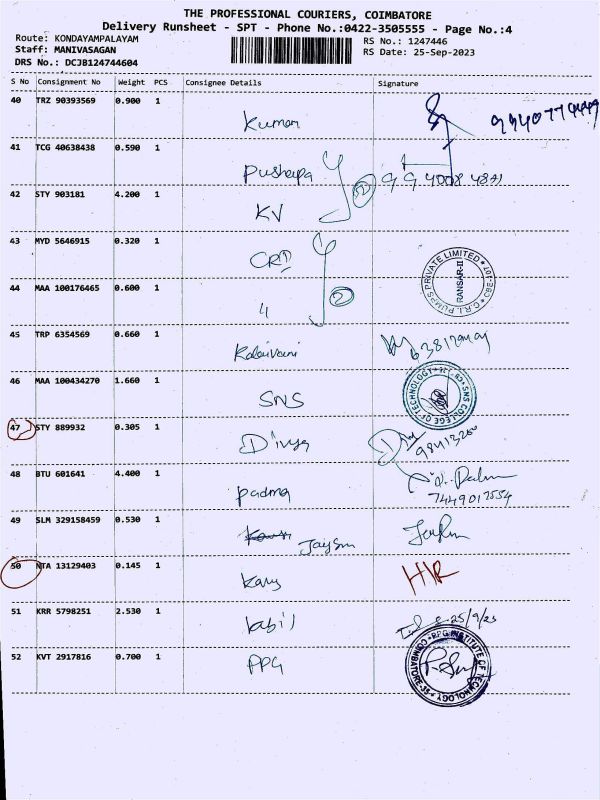 THE PROFESSIONAL COURIERS, COIMBATORE
Delivery Runsheet - SPT - Phone No.:0422-3505555 - Page No.:4
Route: KONDAYAMPALAYAM
Staff: MANIVASAGAN
DRS No.: DCJB124744604
RS No.: 1247446
RS Date: 25-Sep-2023
S No Consignment No Weight PCS Consignee Details Signature
40 TRZ 90393569 0.900 1
Kumar
41 TCG 40638438 0.590 1
Pushpa
42 STY 903181 4.200 1
KV
2
43 MYD 5646915 0.320 1
CRI
C.R.I. PUMPS PRIVATE LIMITED
RANSAR-II
44 MAA 100176465 0.600 1
2
45 TRP 6354569 0.660 1
Kalaivani
46 MAA 100434270 1.660 1
SNS
SNS COLLEGE OF TECHNOLOGY
47 STY 889932 0.305 1
Divya
48 BTU 601641 4.400 1
Padma
49 SLM 329158459 0.530 1
50 NTA 13129403 0.145 1
51 KRR 5798251 2.530 1
kabil
25/9/23
52 KVT 2917816 0.700 1
PPG
PPG INSTITUTE OF TECHNOLOGY
COIMBATORE-35